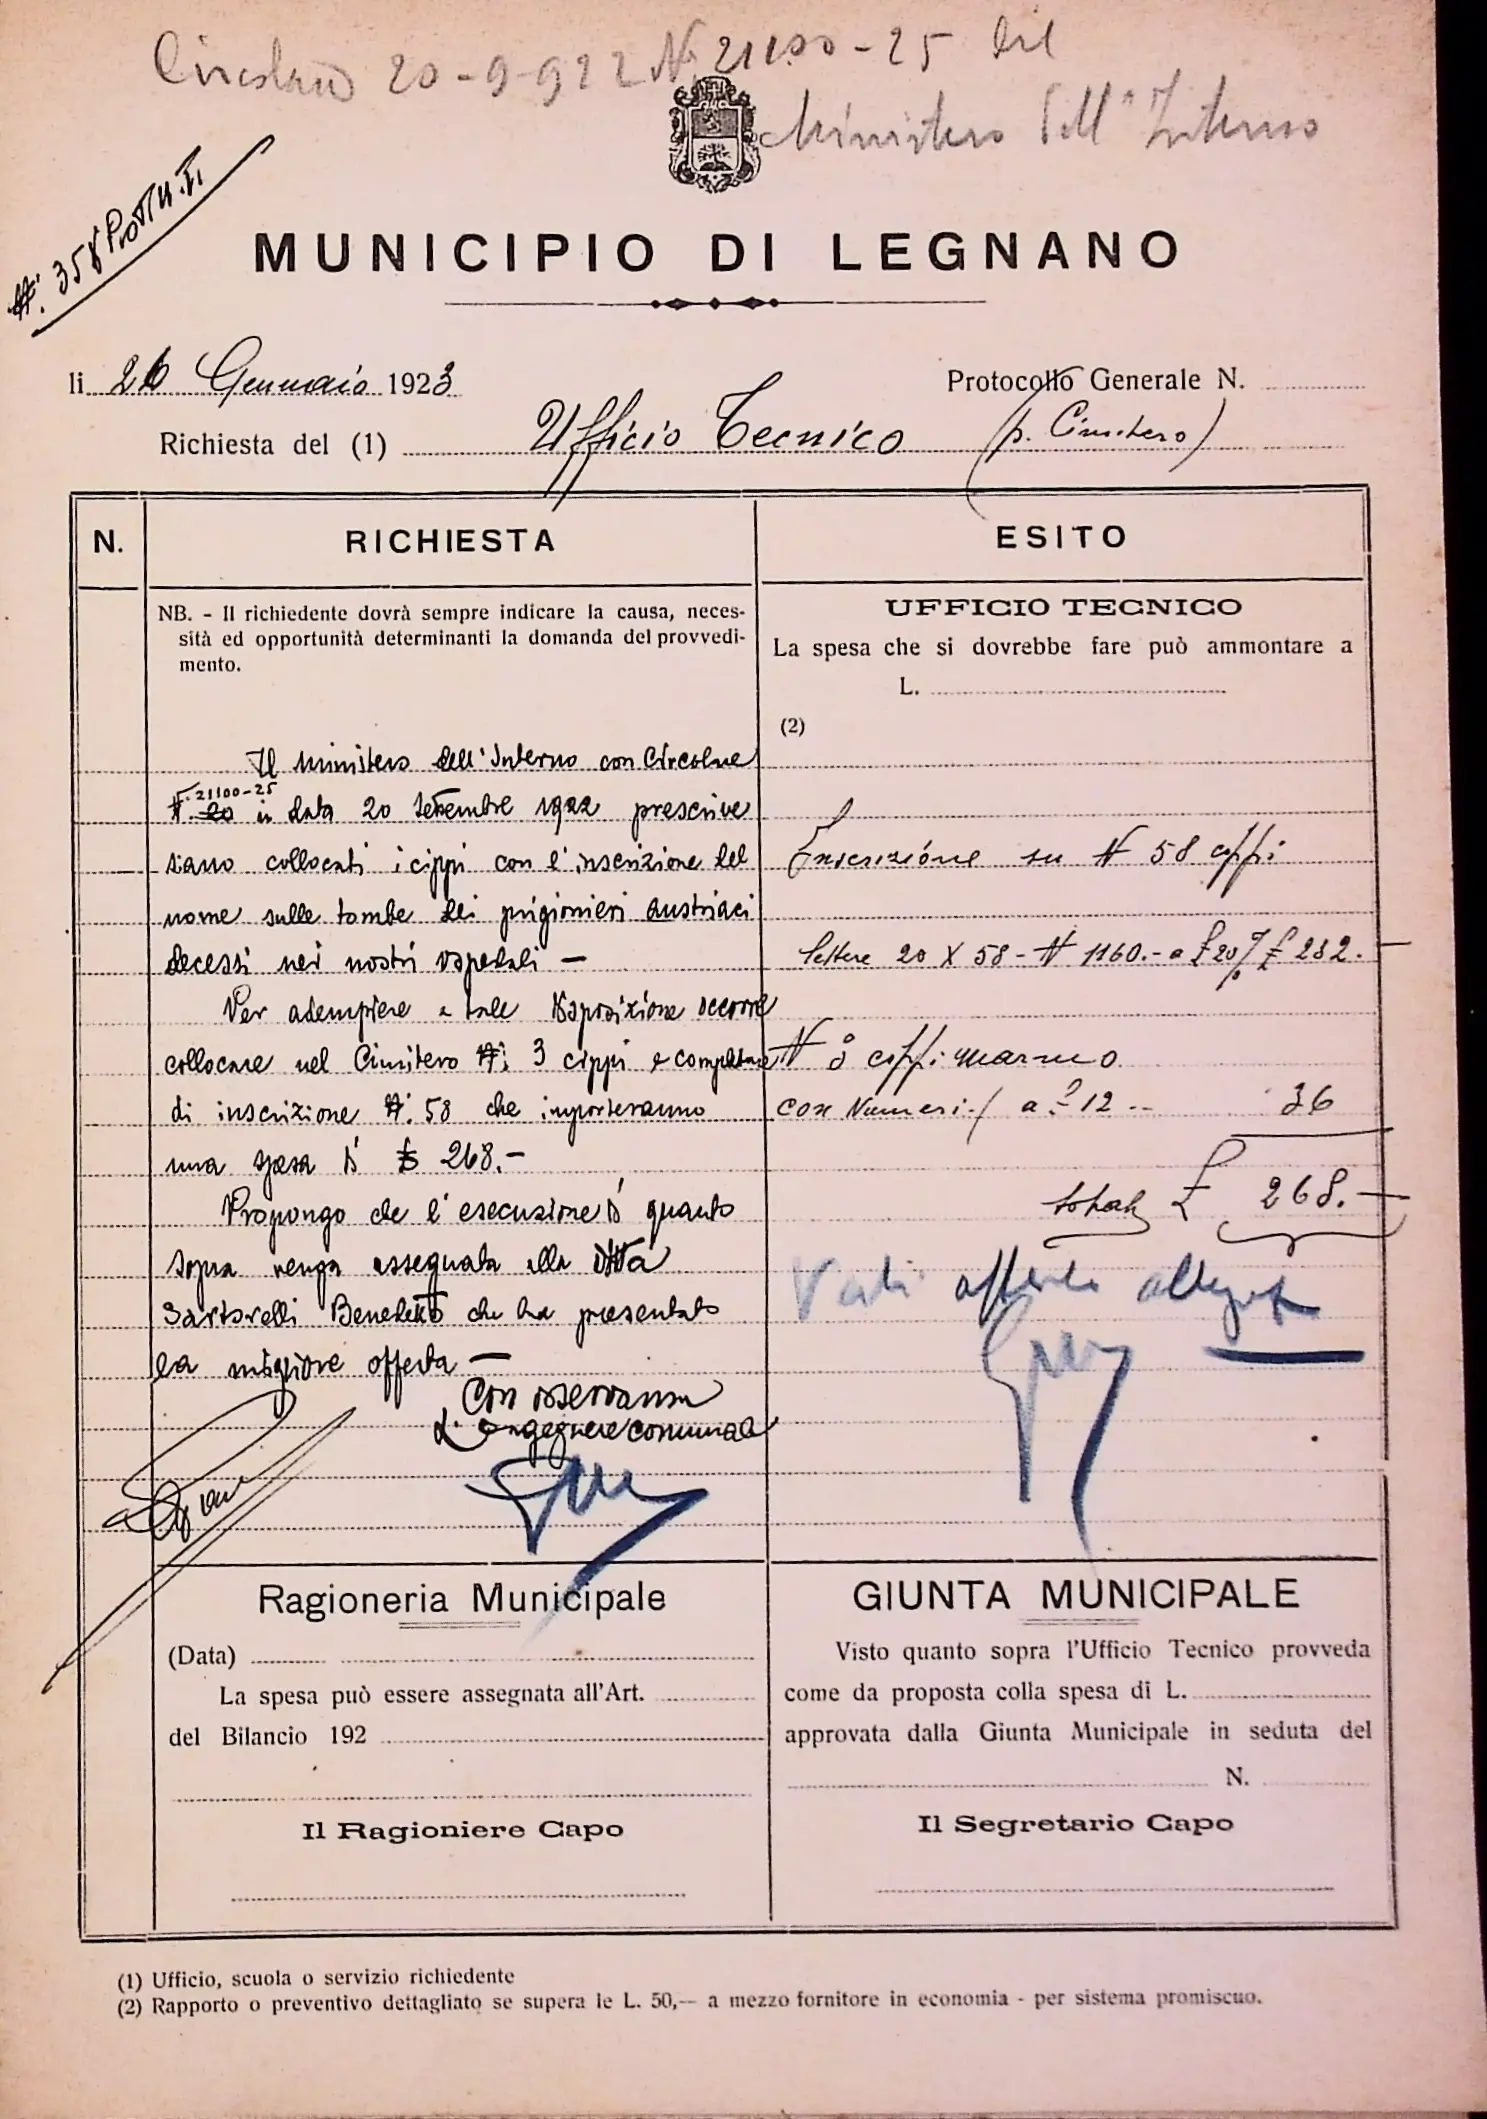 Circolare 20-9-922 N. 21100-25 del
Ministero dell'Interno
N. 358 Prot. U.T.
MUNICIPIO DI LEGNANO
li 26 Gennaio 1923
Protocollo Generale N.
Richiesta del (1) Ufficio Tecnico (p. Cimitero)
N.
RICHIESTA
NB. - Il richiedente dovrà sempre indicare la causa, neces-
sità ed opportunità determinanti la domanda del provvedi-
mento.
Il ministero dell'Interno con Circolare
N. 21100-25
N. 20 in data 20 Settembre 1922 prescrive
siano collocati i cippi con l'inscrizione del
nome sulle tombe dei prigionieri austriaci
decessi nei nostri ospedali —
Per adempiere a tale disposizione occorre
collocare nel Cimitero N. 3 cippi e completare
di inscrizione N. 58 che importeranno
una spesa di £ 268.-
Propongo che l'esecuzione di quanto
sopra venga assegnata alla ditta
Sartorelli Benedetto che ha presentato
la migliore offerta —
Con osservanza
L'Ingegnere comunale
ESITO
UFFICIO TECNICO
La spesa che si dovrebbe fare può ammontare a
L.
(2)
Inscrizione su N 58 cippi
lettere 20 X 58 - N 1160.- a £ 20 % £ 232.—
N 3 cippi marmo
con Numeri a 12 -- 36
totale £ 268.—
Vedi offerta allegata
Ragioneria Municipale
(Data)
La spesa può essere assegnata all'Art.
del Bilancio 192
Il Ragioniere Capo
GIUNTA MUNICIPALE
Visto quanto sopra l'Ufficio Tecnico provveda
come da proposta colla spesa di L.
approvata dalla Giunta Municipale in seduta del
N.
Il Segretario Capo
(1) Ufficio, scuola o servizio richiedente
(2) Rapporto o preventivo dettagliato se supera le L. 50,— a mezzo fornitore in economia - per sistema promiscuo.